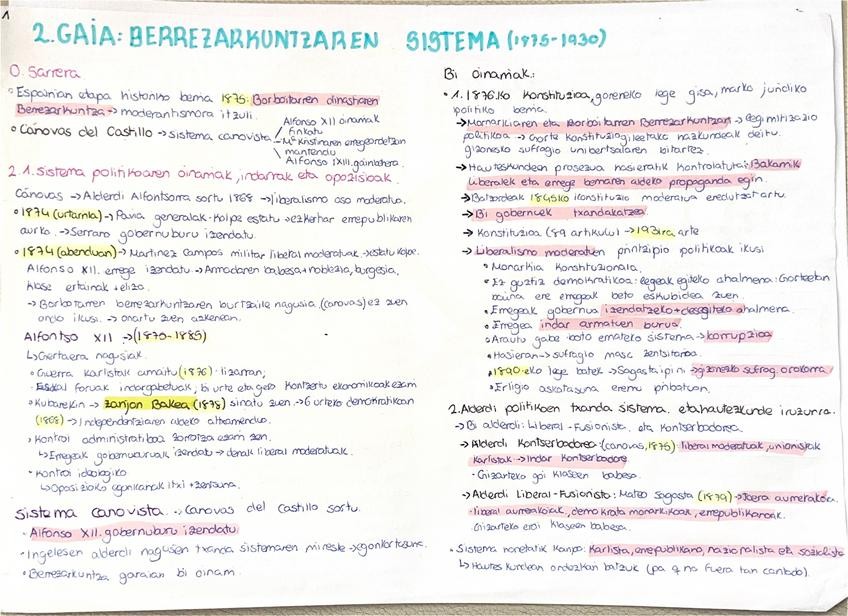 1
2. GAIA: BERREZARKUNTZAREN SISTEMA (1875-1930)
0. Sarrera
• Espainian etapa historiko berria 1875: Borboitarren dinastiaren
Berrezarkuntza → moderantismora itzuli.
• Cánovas del Castillo → Sistema canovista
Alfonso XII oinarriak
finkatu
Mª Kristinaren erregeordetzan
mantendu
Alfonso XIII gainbehera.
2.1. Sistema politikoaren oinarriak, indarrak eta oposizioak.
Cánovas → Alderdi Alfontsorra sortu 1868 → liberalismo oso moderatua.
• 1874 (urtarrila) → Pavia generalak - Kolpe estatu → ezkertiar errepublikaren
aurka. → Serrano gobernuburu izendatu.
• 1874 (abenduan) → Martinez Campos militar liberal moderatuak → estatu kolpe.
Alfonso XII. errege izendatu → Armadaren babesa + noblezia, burgesia,
klase ertainak + eliza.
→ Borboitarren berrezarkuntzaren bultzatzaile nagusia (canovas) ez zuen
ondo ikusi. → onartu zuen azkenean.
Alfontso XII → (1875-1885)
↳ Gertaera nagusiak.
• Guerra karlistak amaitu (1876) :
• Euskal foruak indargabetuak, bi urte eta gero kontzertu ekonomikoak ezarri
• Kubarekin → Zanjon Bakea (1878) sinatu zuen → 6 urteko demokratikoan
(1868) → Independentziaren aldeko altxamendua.
• Kontrol administratiboa zorrotza ezarri zen.
↳ Erregeak gobernuburuak izendatu → denak liberal moderatuak.
• Kontrol ideologiko
↳ Oposizioko egunkariak itxi + zentsura.
Sistema canovista → Canovas del Castillo sortu.
• Alfonso XII. gobernuburu izendatu
• Ingelesen alderdi nagusien txanda sistemaren miresle → egonkortasuna.
• Berrezarkuntza garaian bi oinarri.
Bi oinarriak:
• 1. 1876.ko Konstituzioa, goreneko lege gisa, marko juridiko
politiko berria.
→ Monarkiaren eta Borboitarren Berrezarkuntzan → legimitizazio
politikoa → Gorte Konstituziogileetako hauteskundeak deitu.
gizonezko sufragio unibertsalaren bitartez.
→ Hauteskundeen prozesua hasieratik kontrolatuta: Bakarrik
liberalek eta errege berriaren aldeko propaganda egin.
→ Batzordeak 1845ko konstituzio moderatua eredutzat artu.
→ Bi gobernuek txandakatzea
→ Konstituzioa (89 artikulu) → 1931ra arte
→ Liberalismo moderatuen printzipio politikoak ikusi
• Monarkia Konstituzionala.
• Ez guztiz demokratikoa: legeak egiteko ahalmena: Gorteetan
baina ere erregeak beto eskubidea zuen.
• Erregeak gobernua izendatzeko + desegiteko ahalmena.
• Erregea indar armatuen burua.
• Arautu gabe boto emateko sistema → korrupzioa
• Hasieran → sufragio masc. zentsitarioa.
• 1890.eko lege batek → Sagasta ipini → gizonezko sufrag. orokorra.
• Erligio askatasuna eremu pribatuan.
2. Alderdi politikoen txanda sistema. eta hautezkunde iruzurra.
→ Bi alderdi: Liberal-Fusionista. eta Kontserbadorea.
→ Alderdi Kontserbadorea: (canovas, 1875) liberal moderatuak, unionistak
karlistak → Indar Kontserbadore.
• Gizarteko goi klaseen babesa.
→ Alderdi Liberal-Fusionista: Mateo Sagasta (1879) → Joera aurrerakoia.
• liberal aurrerakoiak, demokrata monarkikoak, errepublikanoak.
Gizarteko erdi klaseen babesa.
• Sistema honetatik kanpo: karlista, errepublikano, nazionalista eta sozialista
↳ Hauteskundean ordezkari batzuk (pa q no fuera tan cantado).